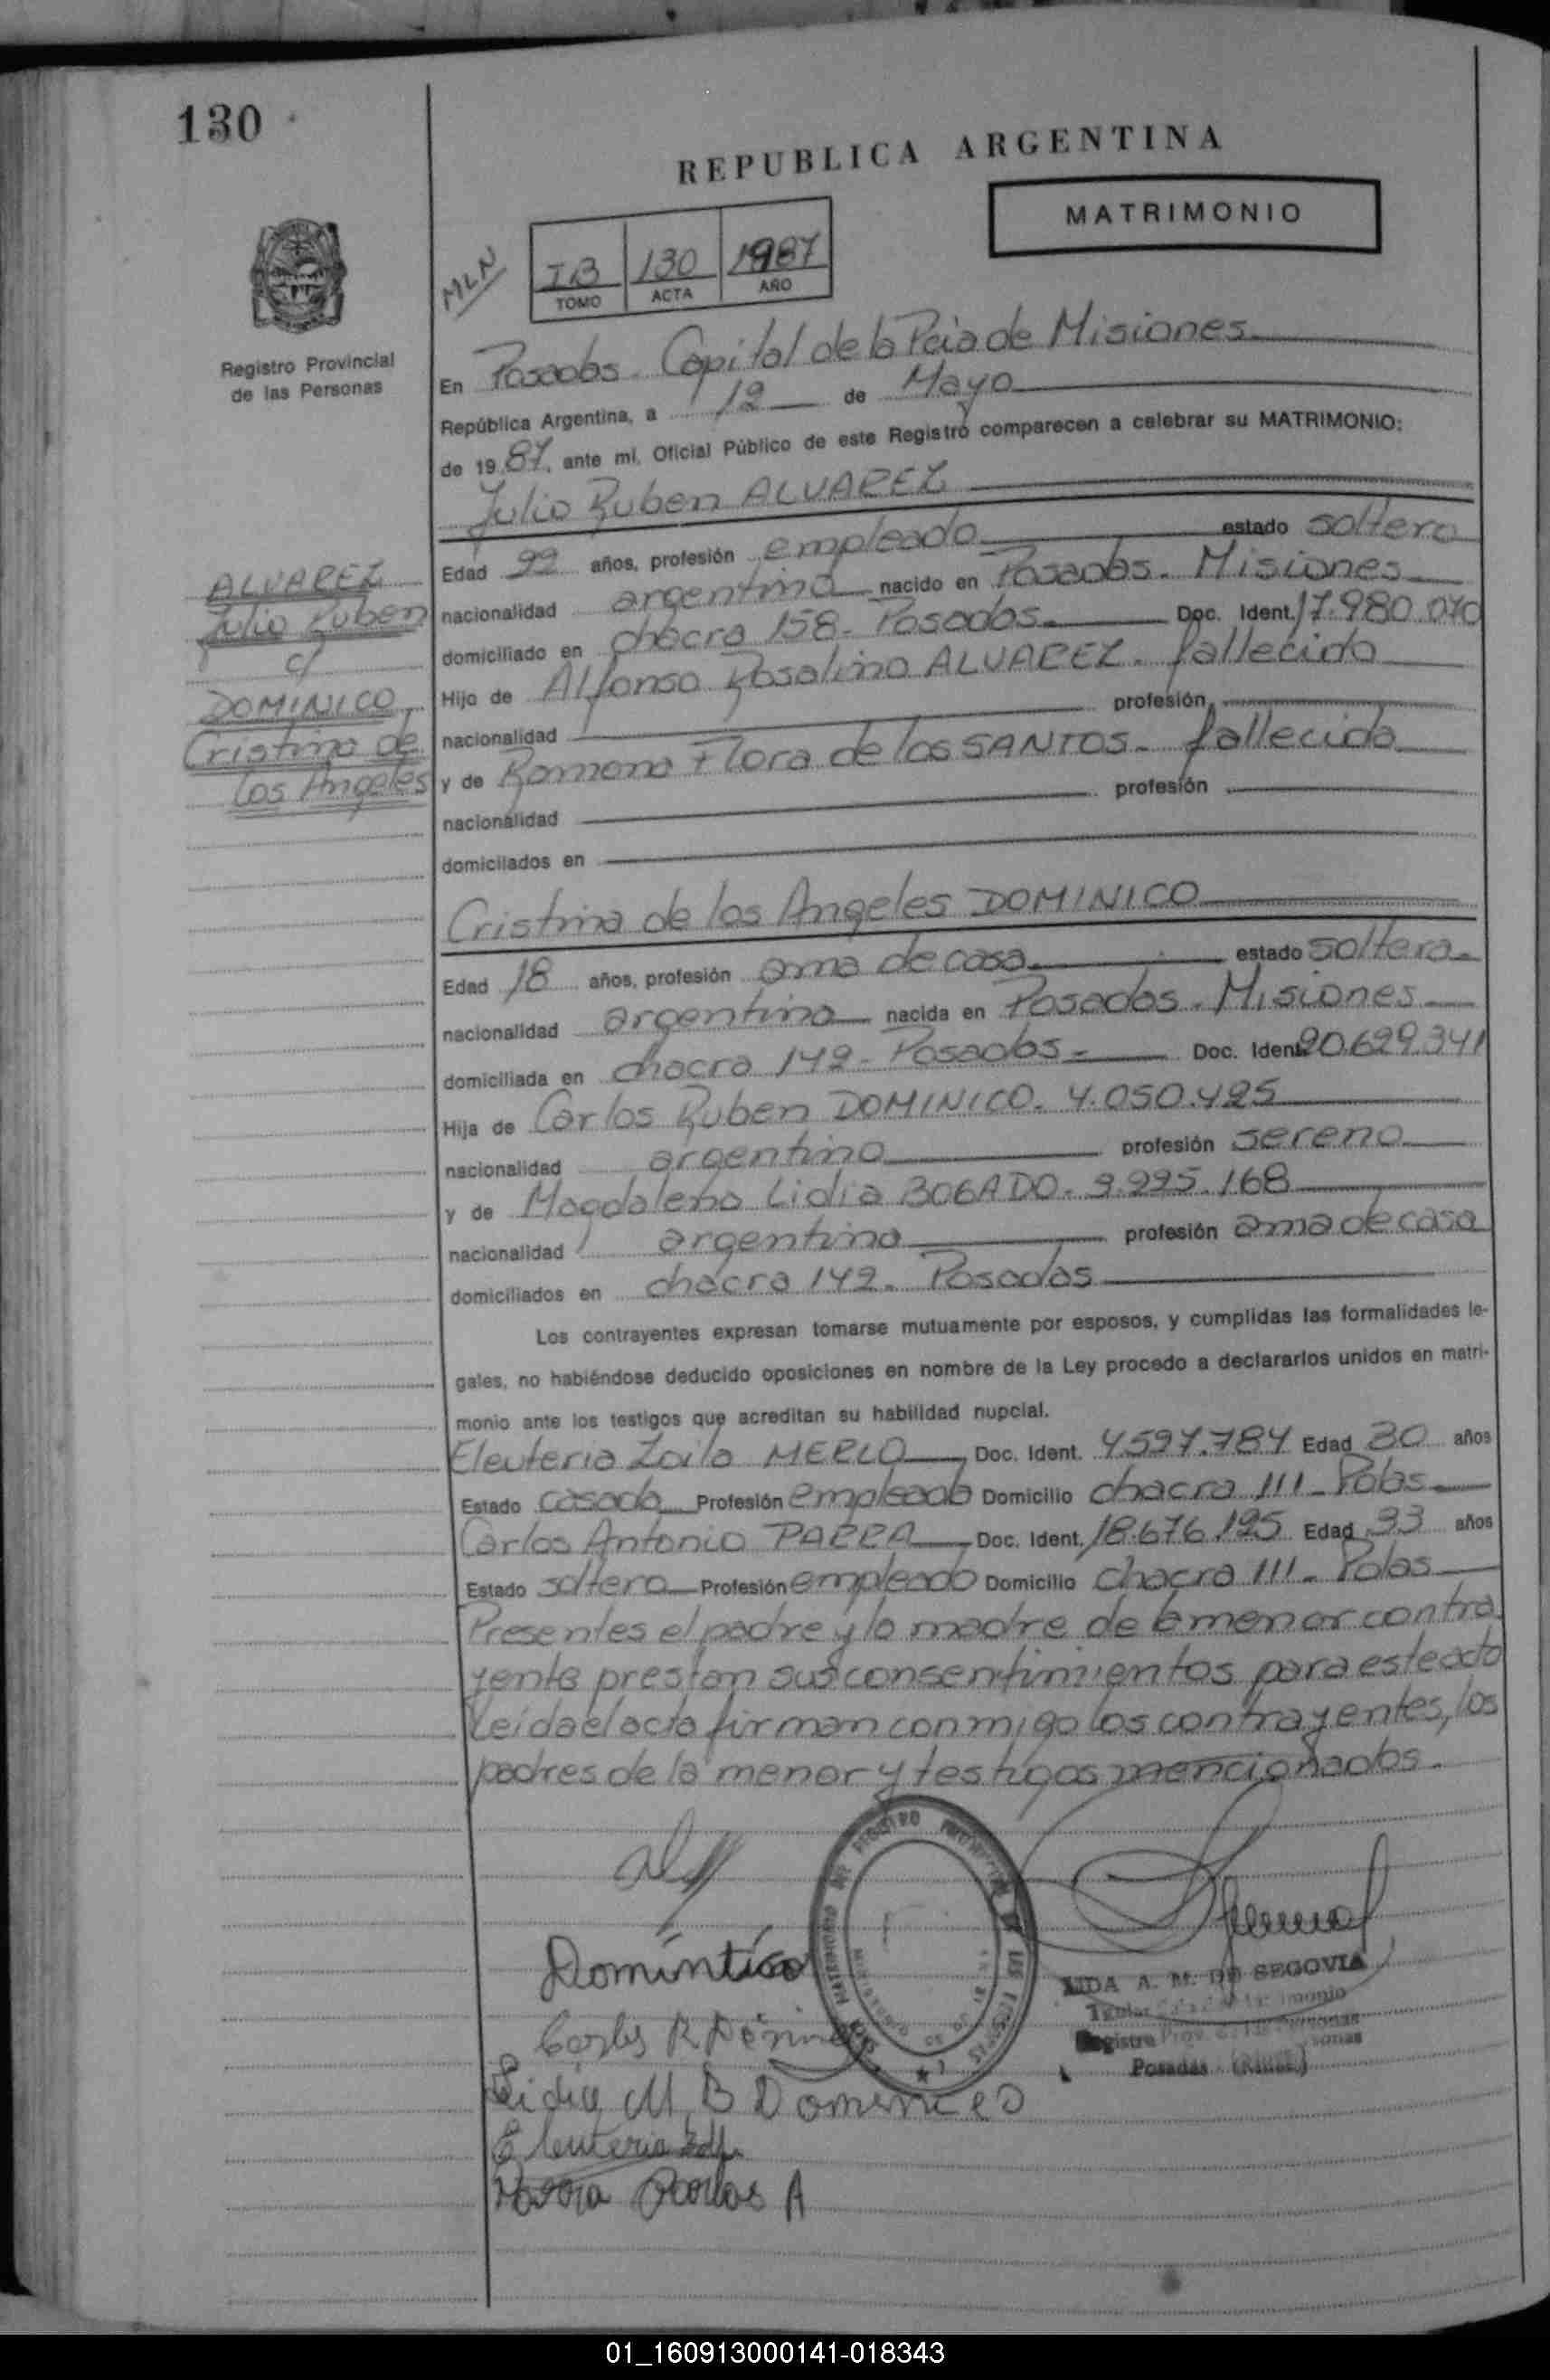 130
REPUBLICA ARGENTINA
MATRIMONIO
MLN
IB 130 1987
TOMO ACTA AÑO
Registro Provincial
de las Personas
En Posadas. Capital de la Pcia de Misiones
República Argentina, a 12 de Mayo
de 19 87, ante mí, Oficial Público de este Registro comparecen a celebrar su MATRIMONIO:
Julio Ruben ALVAREZ
Edad 22 años, profesión empleado estado soltero
nacionalidad argentina nacido en Posadas. Misiones
domiciliado en chacra 158. Posadas. Doc. Ident. 17.980.070
Hijo de Alfonso Rosalino ALVAREZ. fallecido
nacionalidad profesión
y de Ramona Flora de los SANTOS. fallecida
nacionalidad profesión
domicilados en
ALVAREZ
Julio Ruben
c/
DOMINICO
Cristina de
los Angeles
Cristina de los Angeles DOMINICO
Edad 18 años, profesión ama de casa. estado soltera.
nacionalidad argentina nacida en Posadas. Misiones
domiciliada en chacra 142. Posadas. Doc. Ident. 20.629.341
Hija de Carlos Ruben DOMINICO. 4.050.425
nacionalidad argentino profesión sereno
y de Magdalena Lidia BOGADO. 9.995.168
nacionalidad argentina profesión ama de casa
domiciliados en chacra 142. Posadas
Los contrayentes expresan tomarse mutuamente por esposos, y cumplidas las formalidades le-
gales, no habiéndose deducido oposiciones en nombre de la Ley procedo a declararlos unidos en matri-
monio ante los testigos que acreditan su habilidad nupcial.
Eleuteria Zoila MERLO, Doc. Ident. 4.597.784 Edad 30 años
Estado casada Profesión empleada Domicilio chacra 111. Pdas.
Carlos Antonio PARRA, Doc. Ident. 18.676.125 Edad 33 años
Estado soltero Profesión empleado Domicilio chacra 111. Pdas
Presentes el padre y la madre de la menor contra
yente prestan sus consentimientos para este acto
Leída el acta firman conmigo los contrayentes, los
padres de la menor y testigos mencionados.
Carlos R
Lidia M B Dominico
Eleuteria
Parra Carlos A
A. M. DE SEGOVIA
Registro Prov.
Posadas
01_160913000141-018343